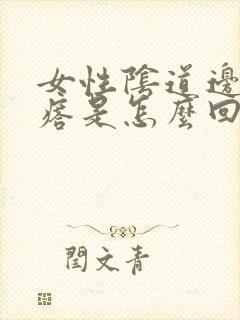 女性陰道邊
痞是怎麼回
閆文青